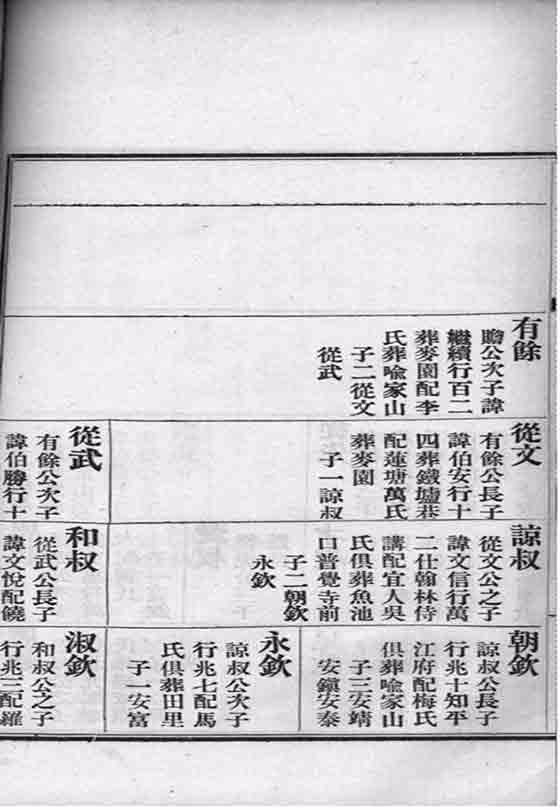 有餘
贍公次子諱
繼續行百二
葬麥園配李
氏葬喻家山
子二從文
從武
從文
有餘公長子
諱伯安行十
四葬鐵墟巷
配蓮塘萬氏
葬麥園
子一諒叔
從武
有餘公次子
諱伯勝行十
諒叔
從文公之子
諱文信行萬
二仕翰林侍
講配宜人吳
氏俱葬魚池
口普覺寺前
子二朝欽
永欽
和叔
從武公長子
諱文悅配饒
朝欽
諒叔公長子
行兆十知平
江府配梅氏
俱葬喻家山
子三安靖
安鎮安泰
永欽
諒叔公次子
行兆七配馬
氏俱葬田里
子一安富
淑欽
和叔公之子
行兆二配羅